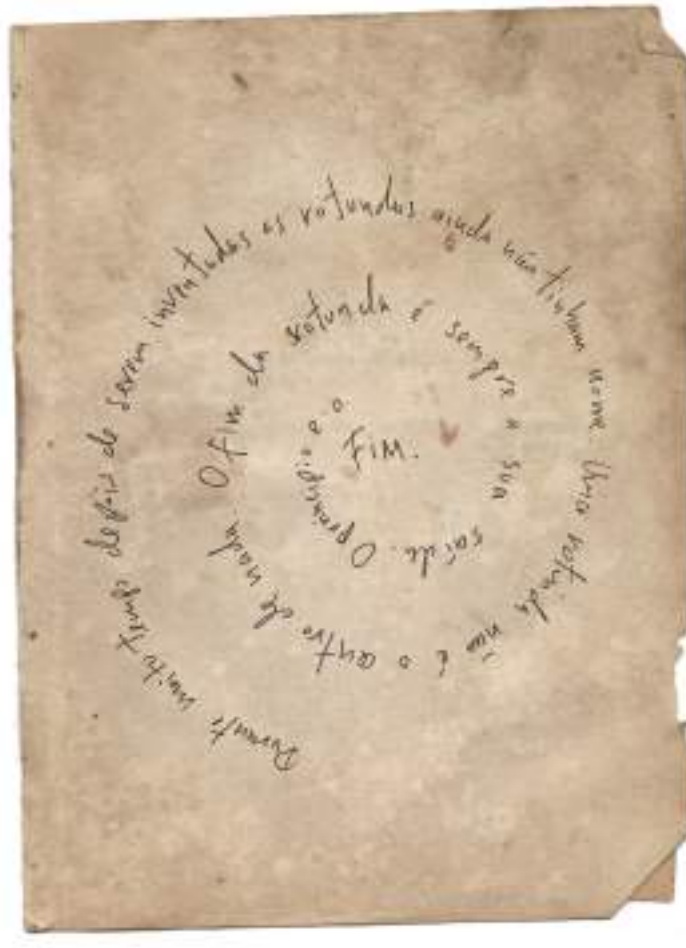 Durante muito tempo depois de serem inventadas as rotundas ainda não tinham nome. Uma rotunda não é o centro de nada. O fim da rotunda é sempre a sua saída. O princípio e o FIM.